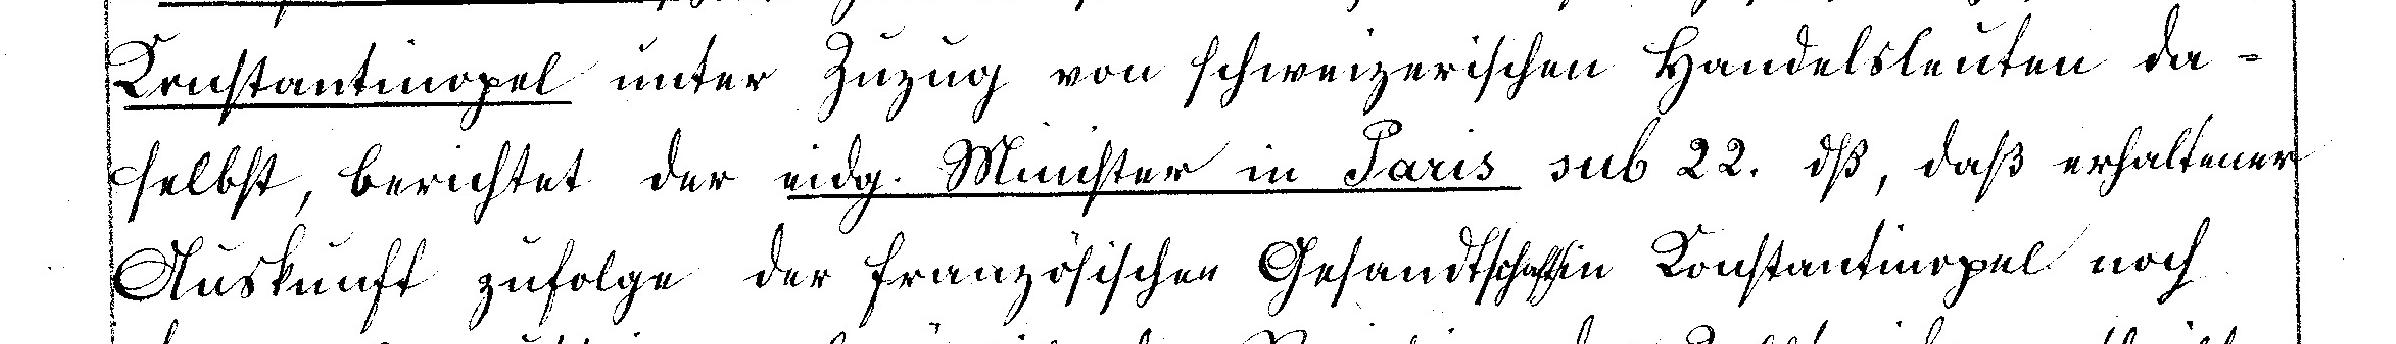 Konstantinopel unter Zuzug von schweizerischen Handelsleuten da-
selbst, berichtet der eidg. Minister in Paris sub 22. dß, daß erhaltener
Auskunft zufolge der französischen Gesandtschaft in Konstantinopel noch